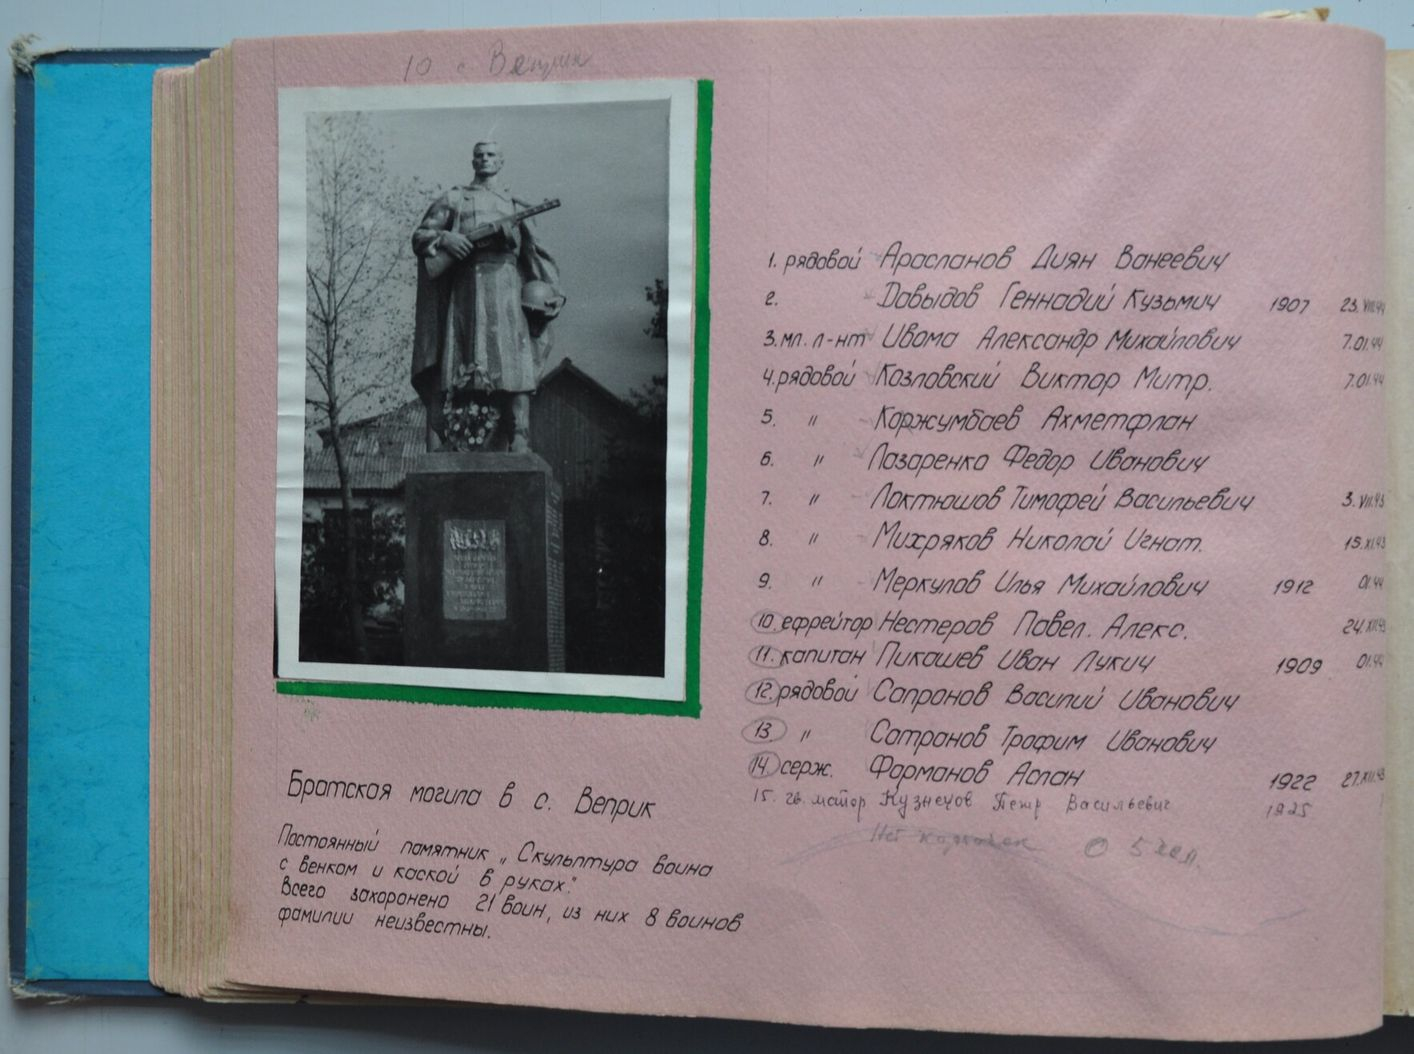 10 с Веприк
1. рядовой Арасланов Диян Ванеевич
2. Давыдов Геннадий Кузьмич 1907 23.VIII.44
3. мл. л-нт Ивома Александр Михайлович 7.01.44
4. рядовой Козловский Виктор Митр. 7.01.44
5. " Коржумбаев Ахметфлан
6. " Лазаренко Федор Иванович
7. " Локтюшов Тимофей Васильевич 3.VII.43
8. " Михряков Николай Игнат. 15.XI.43
9. " Меркулов Илья Михайлович 1912 01.44
10. ефрейтор Нестеров Павел. Алекс. 24.XII.43
11. капитан Пикашев Иван Лукич 1909 01.44
12. рядовой Сапронов Василий Иванович
13. " Сатранов Трофим Иванович
14. серж. Форманов Аслан 1922 27.XII.43
15. гв. Кузнецов Петр Васильевич 1925
Нет
Братская могила в с. Веприк
Постоянный памятник „Скульптура воина
с венком и каской в руках."
Всего захоронено 21 воин, из них 8 воинов
фамилии неизвестны.